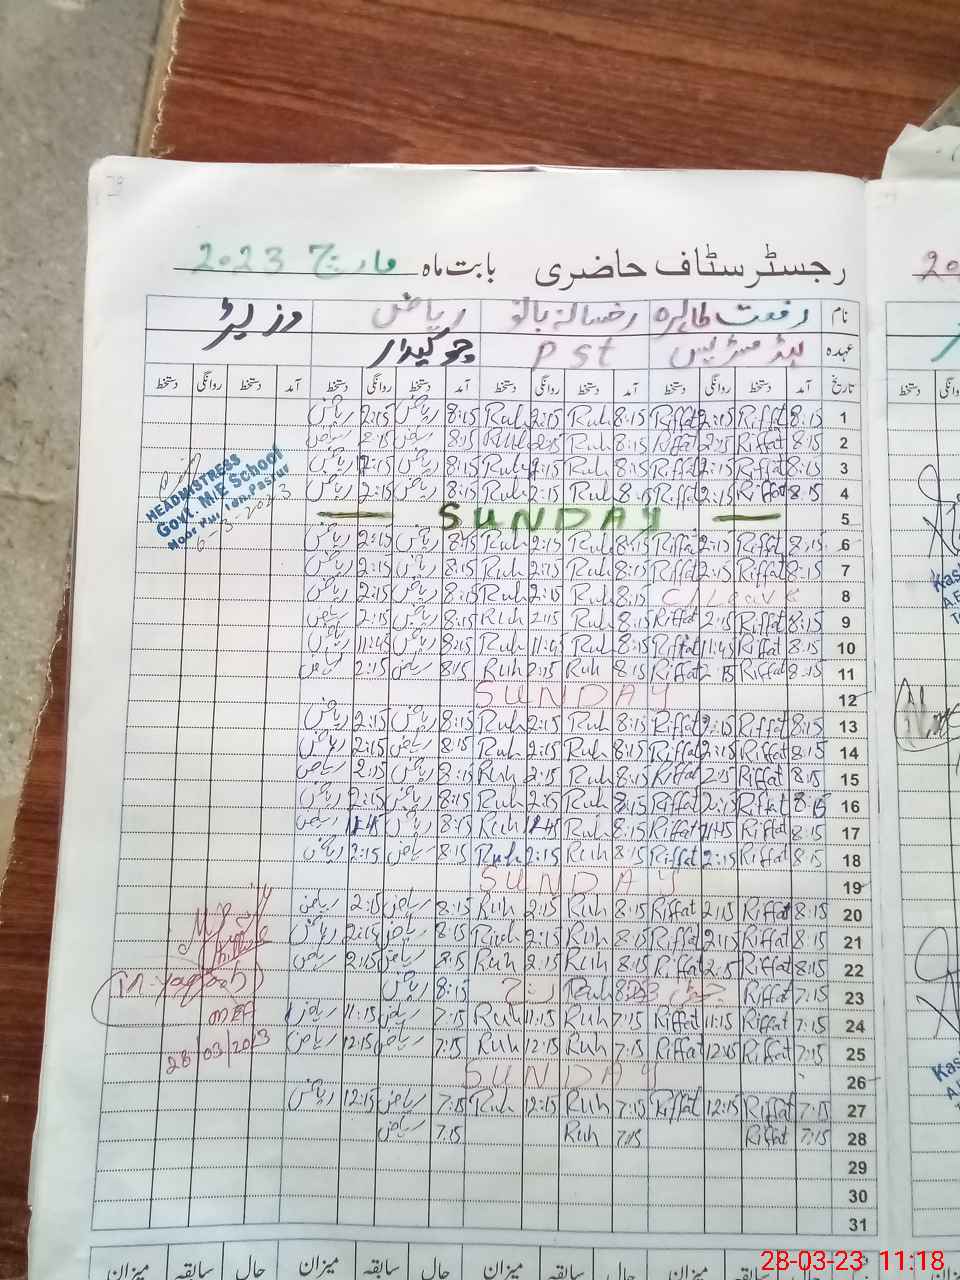 رجسٹر سٹاف حاضری بابت ماہ مارچ 2023
نام رفعت طاہرہ رخسانہ بانو ریاض وزیٹر
عہدہ ہیڈ مسٹریس PST چوکیدار
تاریخ آمد دستخط روانگی دستخط آمد دستخط روانگی دستخط آمد دستخط روانگی دستخط آمد دستخط روانگی دستخط
1 8:15 Riffat 2:15 Riffat 8:15 Ruh 2:15 Ruh 8:15 ریاض 2:15 ریاض
2 8:15 Riffat 2:15 Riffat 8:15 Ruh 2:15 Ruh 8:15 ریاض 2:15 ریاض
3 8:15 Riffat 2:15 Riffat 8:15 Ruh 2:15 Ruh 8:15 ریاض 2:15 ریاض
4 8:15 Riffat 2:15 Riffat 8:15 Ruh 2:15 Ruh 8:15 ریاض 2:15 ریاض
5 — SUNDAY —
6 8:15 Riffat 2:15 Riffat 8:15 Ruh 2:15 Ruh 8:15 ریاض 2:15 ریاض
7 8:15 Riffat 2:15 Riffat 8:15 Ruh 2:15 Ruh 8:15 ریاض 2:15 ریاض
8 C/Leave 8:15 Ruh 2:15 Ruh 8:15 ریاض 2:15 ریاض
9 8:15 Riffat 2:15 Riffat 8:15 Ruh 2:15 Ruh 8:15 ریاض 2:15 ریاض
10 8:15 Riffat 11:45 Riffat 8:15 Ruh 11:45 Ruh 8:15 ریاض 11:45 ریاض
11 8:15 Riffat 2:15 Riffat 8:15 Ruh 2:15 Ruh 8:15 ریاض 2:15 ریاض
12 SUNDAY
13 8:15 Riffat 2:15 Riffat 8:15 Ruh 2:15 Ruh 8:15 ریاض 2:15 ریاض
14 8:15 Riffat 2:15 Riffat 8:15 Ruh 2:15 Ruh 8:15 ریاض 2:15 ریاض
15 8:15 Riffat 2:15 Riffat 8:15 Ruh 2:15 Ruh 8:15 ریاض 2:15 ریاض
16 8:15 Riffat 2:15 Riffat 8:15 Ruh 2:15 Ruh 8:15 ریاض 2:15 ریاض
17 8:15 Riffat 11:45 Riffat 8:15 Ruh Ruh 8:15 ریاض ریاض
18 8:15 Riffat 2:15 Riffat 8:15 Ruh 2:15 Ruh 8:15 ریاض 2:15 ریاض
19 SUNDAY
20 8:15 Riffat 2:15 Riffat 8:15 Ruh 2:15 Ruh 8:15 ریاض 2:15 ریاض
21 8:15 Riffat 2:15 Riffat 8:15 Ruh 2:15 Ruh 8:15 ریاض 2:15 ریاض
22 8:15 Riffat 2:15 Riffat 8:15 Ruh 2:15 Ruh 8:15 ریاض 2:15 ریاض
23 7:15 Riffat Ruh 8:15 ریاض
24 7:15 Riffat 11:15 Riffat 7:15 Ruh 11:15 Ruh 7:15 ریاض 11:15 ریاض
25 7:15 Riffat 12:15 Riffat 7:15 Ruh 12:15 Ruh 7:15 ریاض 12:15 ریاض
26 SUNDAY
27 7:15 Riffat 12:15 Riffat 7:15 Ruh 12:15 Ruh 7:15 ریاض 12:15 ریاض
28 7:15 Riffat 7:15 Ruh 7:15 ریاض
29
30
31
HEADMISTRESS
Govt. M/E School
6-3-2023
M. Yaqoob
MEA
28/03/2023
حال سابقہ میزان حال سابقہ میزان حال سابقہ میزان
28-03-23 11:18